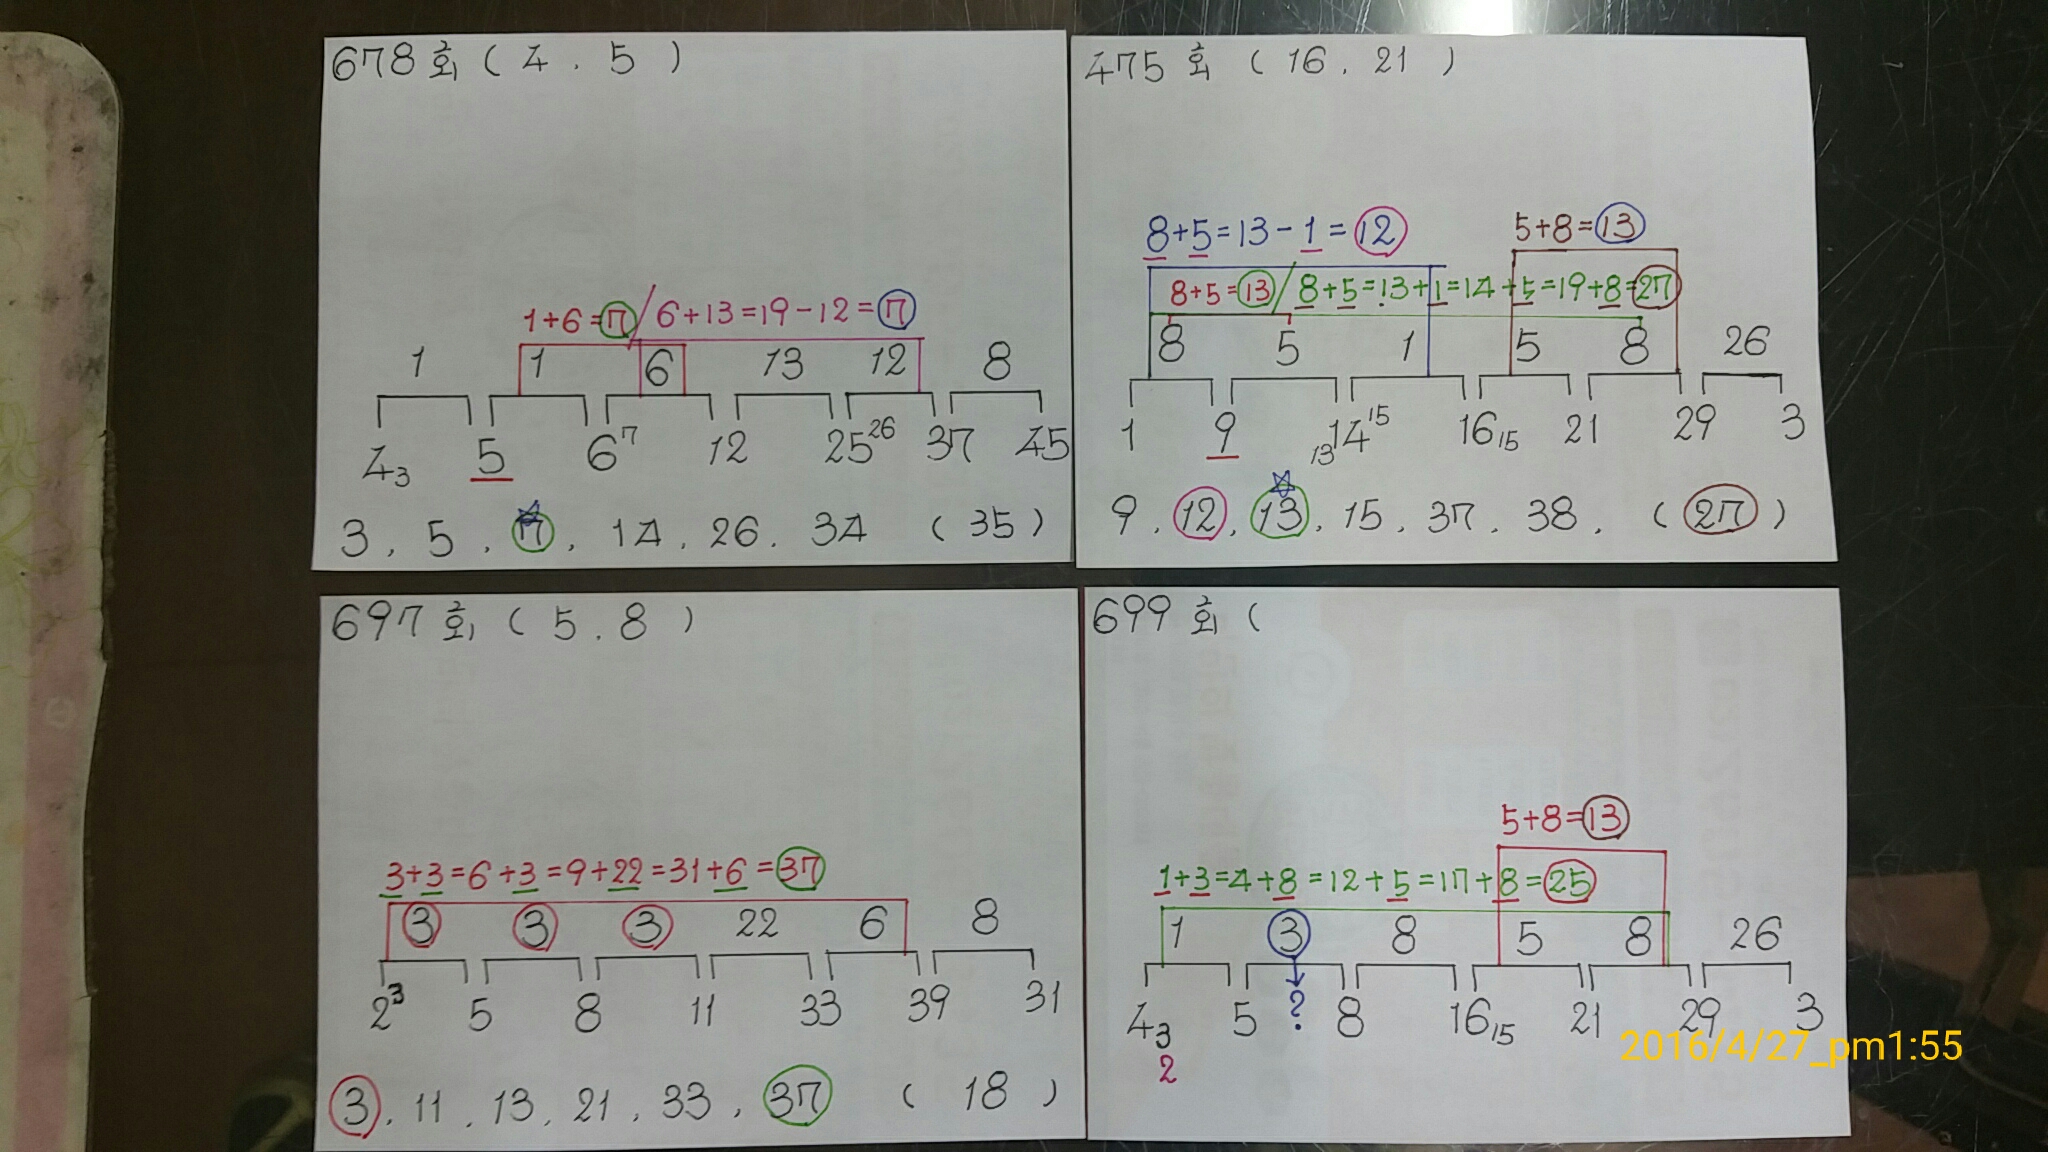 678회 ( 4 . 5 )
1+6=7 / 6+13=19-12=7
1 1 6 13 12 8
4 3 5 6 7 12 25 26 37 45
3 . 5 . 7 . 14 . 26 . 34 ( 35 )
475회 ( 16 . 21 )
8+5=13-1=12 5+8=13
8+5=13 / 8+5=13+1=14+5=19+8=27
8 5 1 5 8 26
1 9 13 14 15 16 15 21 29 3
9 . 12 . 13 . 15 . 37 . 38 . ( 27 )
697회 ( 5 . 8 )
3+3=6+3=9+22=31+6=37
3 3 3 22 6 8
2 3 5 8 11 33 39 31
3 . 11 . 13 . 21 . 33 . 37 ( 18 )
699회 (
5+8=13
1+3=4+8=12+5=17+8=25
1 3 8 5 8 26
4 3 5 ? 8 16 15 21 29 3
2
2016/4/27_pm1:55